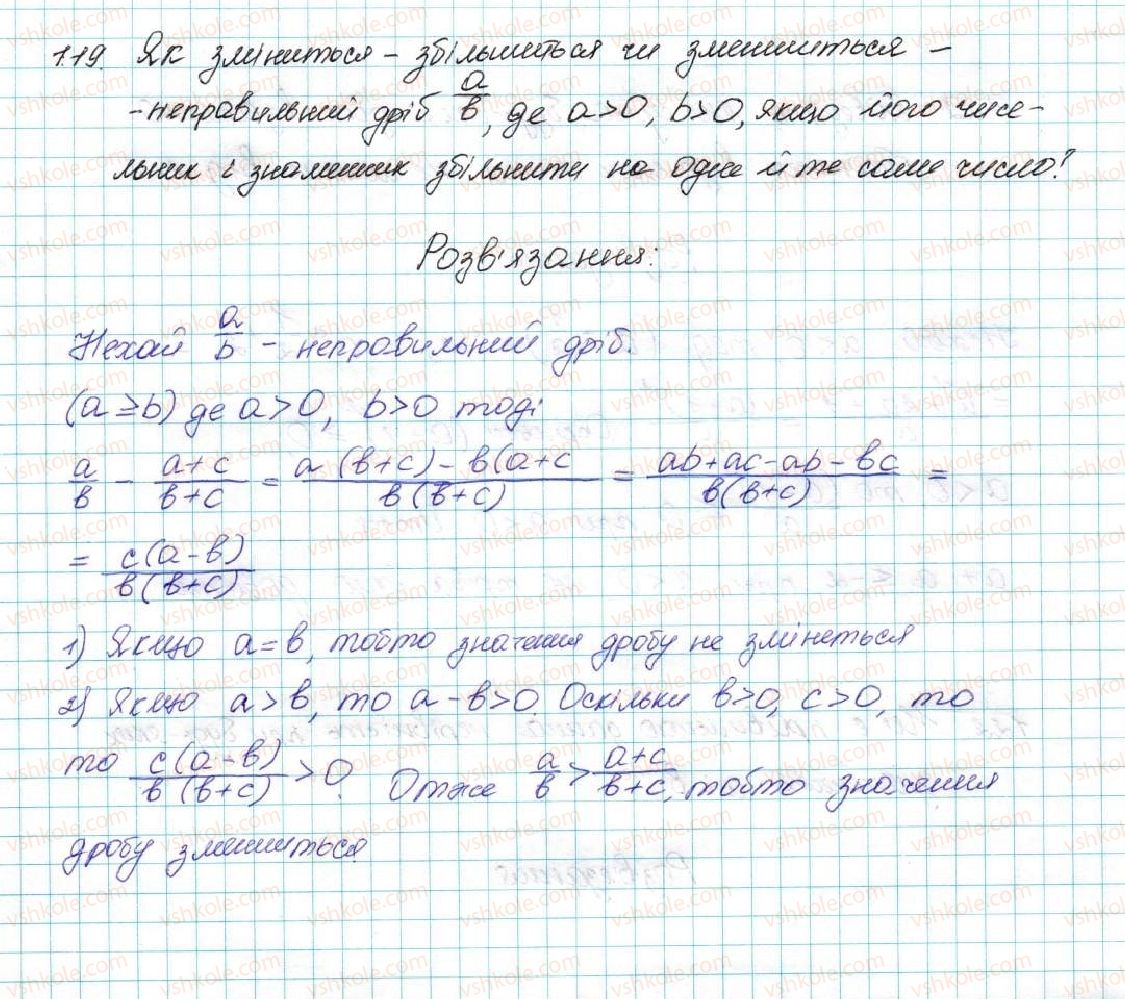 1.19. Як зміниться – збільшиться чи зменшиться –
-неправильний дріб a/b, де a>0, b>0, якщо його чисе-
льник і знаменник збільшити на одне й те саме число?
Розв'язання:
Нехай a/b – неправильний дріб.
(a ≥ b) де a > 0, b > 0 тоді
a/b - (a+c)/(b+c) = (a(b+c) - b(a+c)/(b(b+c)) = (ab+ac-ab-bc)/(b(b+c)) =
= c(a-b)/(b(b+c))
1) Якщо a=b, тобто значення дробу не змінеться
2) Якщо a>b, то a-b>0 Оскільки b>0, c>0, то
то c(a-b)/(b(b+c)) > 0. Отже a/b > (a+c)/(b+c), тобто значення
дробу зменшиться